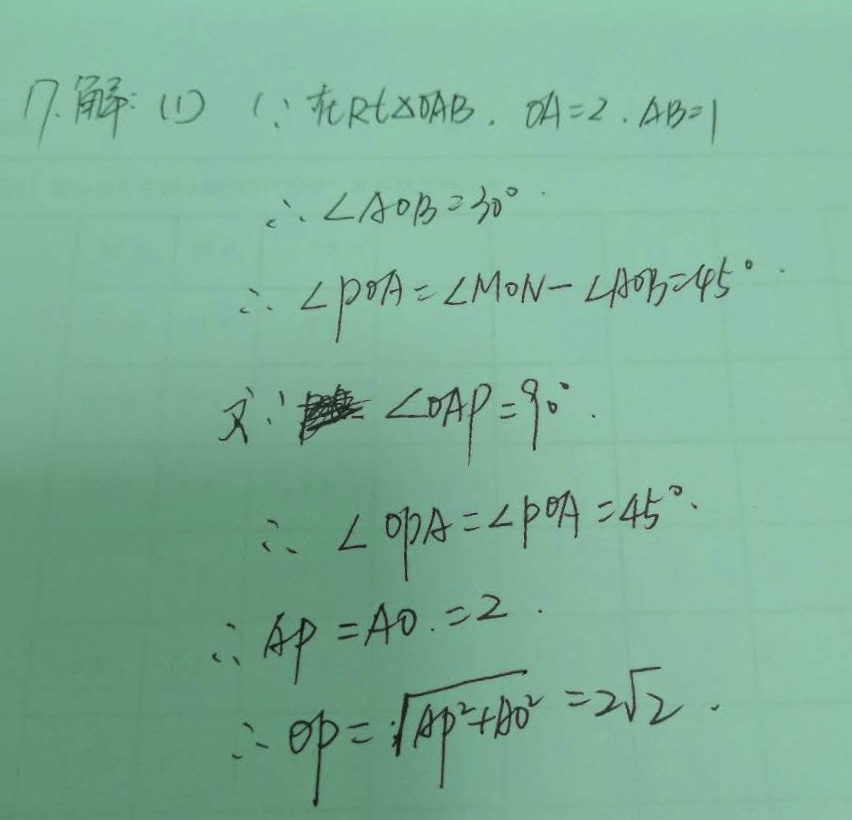 17.解:(1) ∵在Rt△OAB. OA=2. AB=1
∴∠AOB=30°.
∴∠POA=∠MON-∠AOB=45°.
又∵ ∠OAP=90°.
∴∠OPA=∠POA=45°.
∴AP=AO.=2.
∴OP=√(AP²+AO²)=2√2.